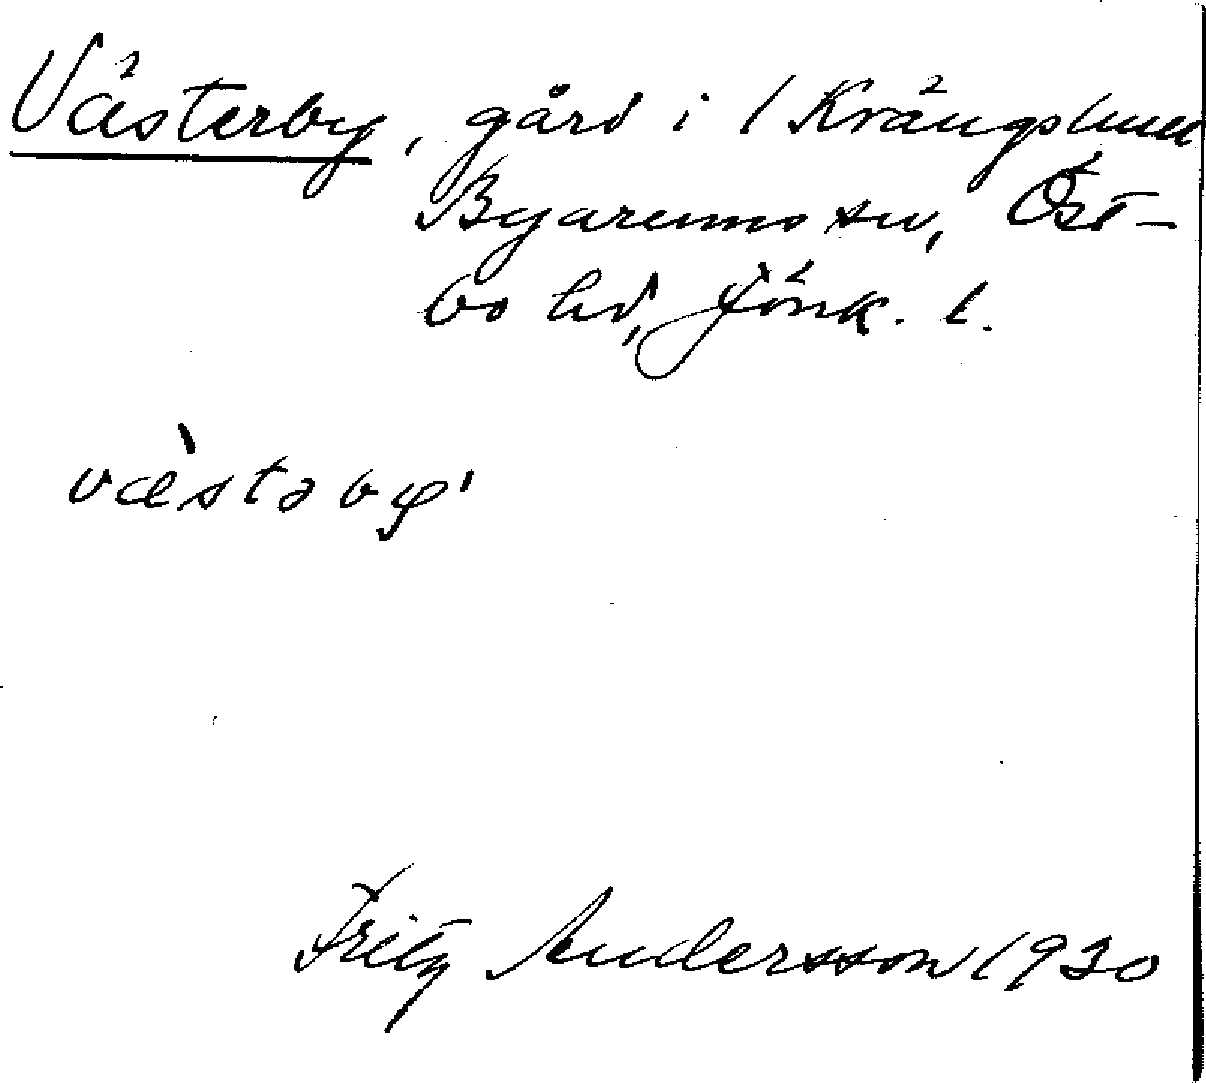 Västerby, gård i 1 Krängshult
Byarums sn, Öst-
bo hd, Jönk. l.
væ̀stəby'
Fritz Andersson 1930